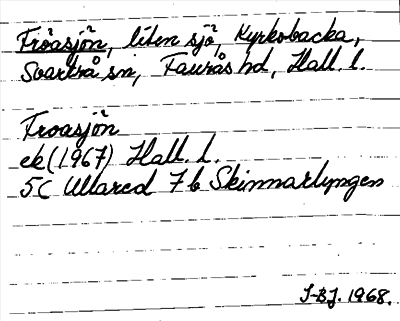 Fröasjön, liten sjö, Kyrkobacka,
Svartrå sn, Faurås hd, Hall. l.
Froasjön
ek (1967) Hall. L.
5C Ullared 7b Skinnarlyngen
I-BJ. 1968.